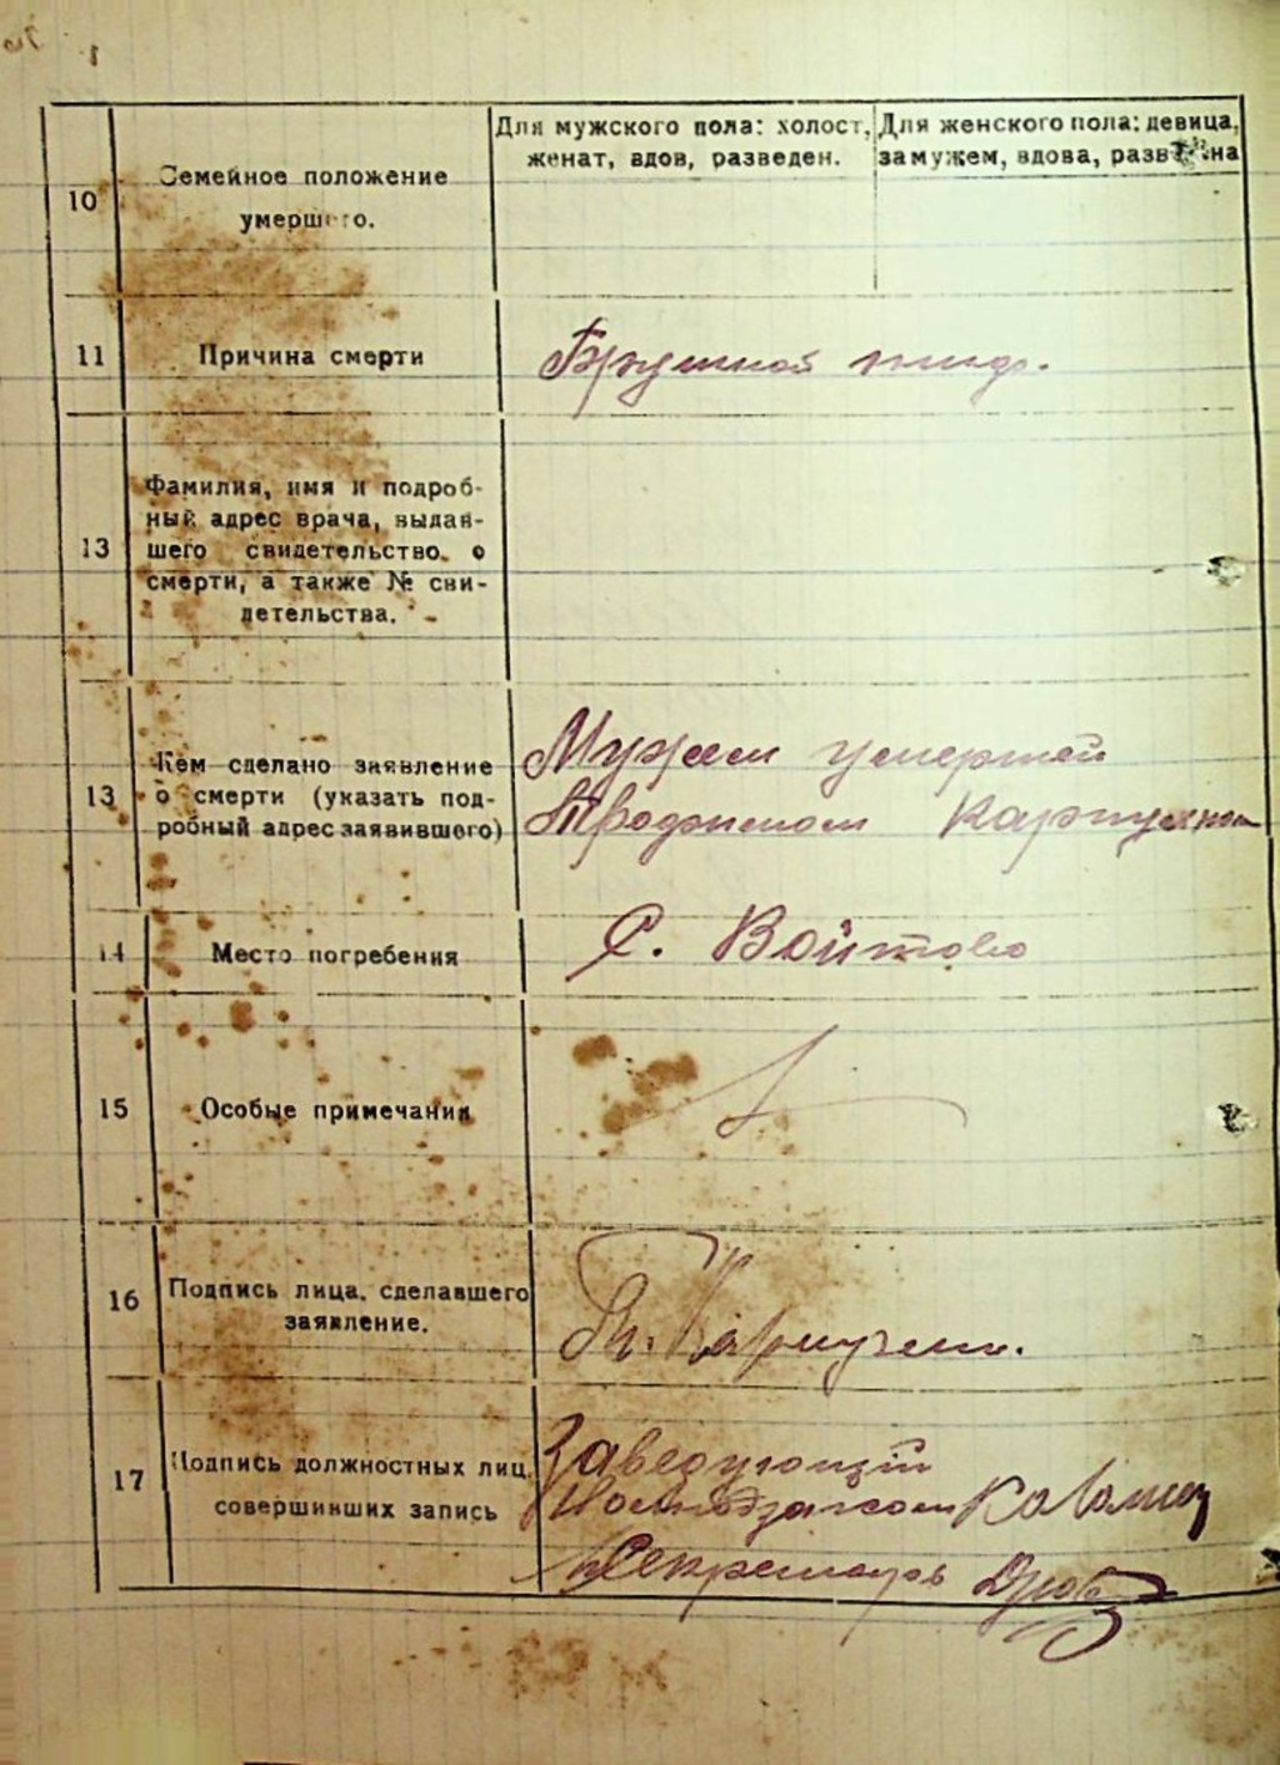 10
Семейное положение
умершего.
Для мужского пола: холост,
женат, вдов, разведен.
Для женского пола: девица,
замужем, вдова, разведена
11
Причина смерти
Брушной тиф.
13
Фамилия, имя и подроб-
ный адрес врача, выдав-
шего свидетельство о
смерти, а также № сви-
детельства.
13
Кем сделано заявление
о смерти (указать под-
робный адрес заявившего)
Мужем умершей
Трофимом
14
Место погребения
С. Войтово
15
Особые примечания
16
Подпись лица, сделавшего
заявление.
17
Подпись должностных лиц,
совершивших запись
Заведующий
Секретарь